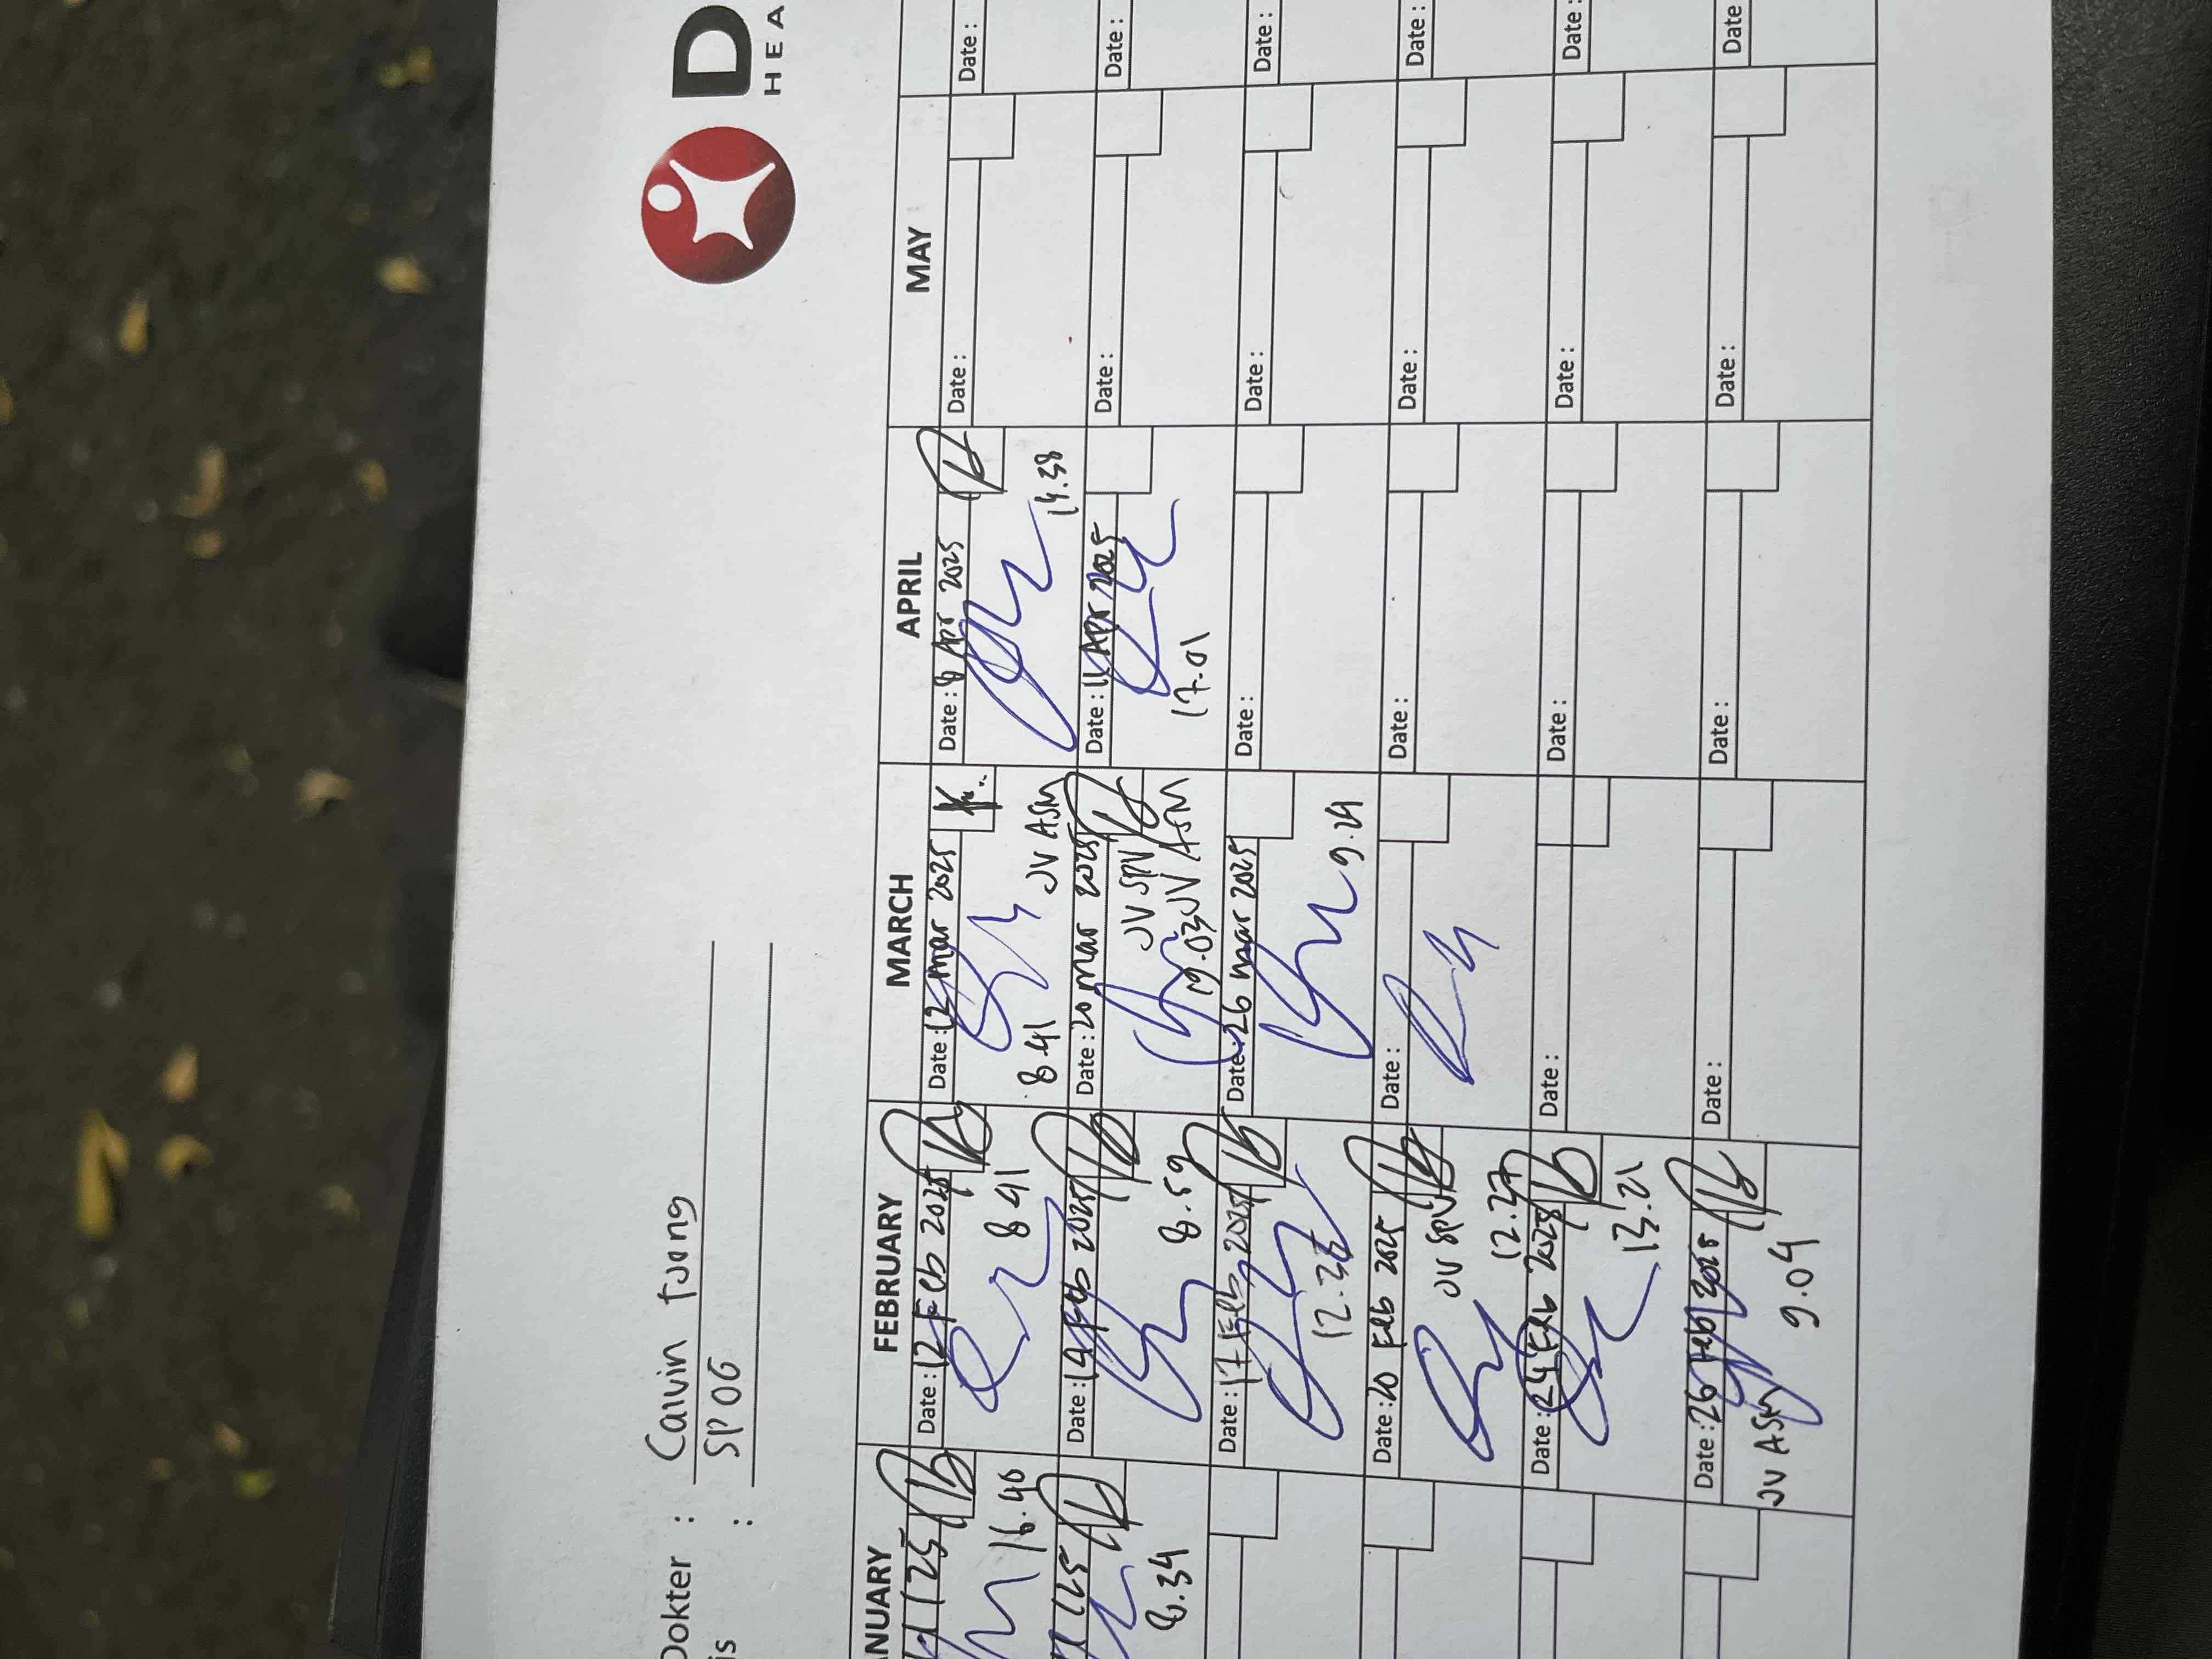 D
HEA
Dokter : Calvin Tjong
is : SPOG
NUARY FEBRUARY MARCH APRIL MAY
125 Date : 12 Feb 2025 Date : 12 mar 2025 Date : 8 Apr 2025 Date : Date :
16.40 8.41 8.41 JV ASM 14.38
125 Date : 14 Feb 2025 Date : 20 mar 2025 Date : 11 Apr 2025 Date : Date :
8.34 8.59 JV SPV 19.03 JV ASM 17.01
Date : 17 Feb 2025 Date : 26 mar 2025 Date : Date : Date :
12.36 9.24
Date : 20 Feb 2025 Date : Date : Date : Date :
JV SPV 12.27
Date : 24 Feb 2025 Date : Date : Date : Date :
13.21
Date : 26 Feb 2025 Date : Date : Date : Date
JV ASM 9.04